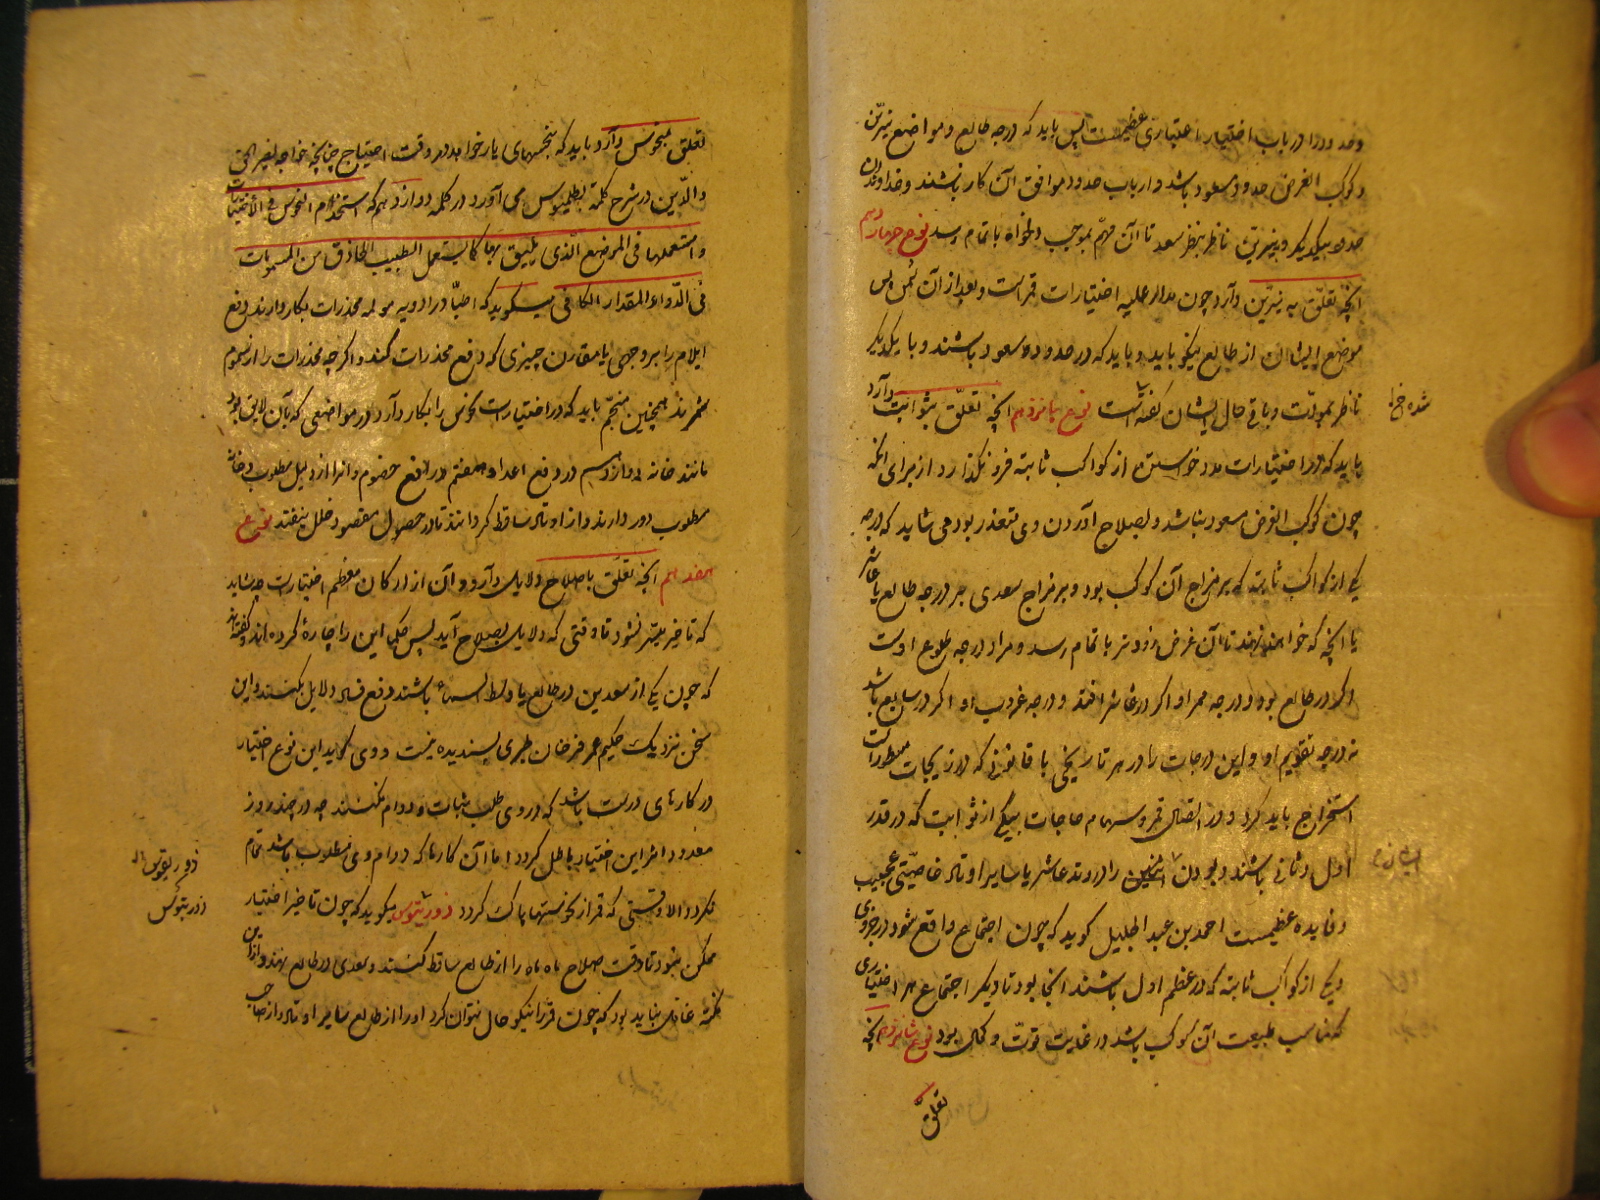 و حدود را در باب اختیار اعتباری عظیمست پس باید که درجه طالع و مواضع نیرین
و کوکب الغرض حدود مسعود باشد و ارباب حدود موافق آن کار باشند و خداوندان
حدود بیکدیگر و بنیرین ناظر بنظر سعد تا آن مهم بموجب دلخواه باتمام رسد نوع چهاردهم
آنچه تعلق به نیرین دارد چون مدار علیه اختیارات قمر است و بعد از آن شمس پس
موضع ایشان از طالع نیکو باید و باید که در حدود سعود باشند و با یکدیگر
ناظر بمودت و باقی حال ایشان گفته شده است نوع پانزدهم آنچه تعلق بثوابت دارد
باید که در اختیارات مدد خواستن از کواکب ثابته فرو نگذارد از برای آنکه
چون کوکب الغرض مسعود نباشد و بصلاح آوردن وی متعذر بود می شاید که درجه
یکی از کواکب ثابته که بر مزاج آن کوکب بود و بر مزاج سعدی بر درجه طالع یا عاشر
یا آنچه که خواهند نهند تا آن غرض زودتر باتمام رسد و مراد درجه طلوع اوست
اگر در طالع بود و درجه ممر او اگر در عاشر افتد و درجه غروب او اگر در سابع باشد
نه درجه تقویم او و این درجات را در هر تاریخی با قانونی که در زیجات مسطور است
استخراج باید کرد و در اتصال قمر و سهام حاجات بیکی از ثوابت که در قدر
اول و ثانی باشند و بودن ایشان را در وتد عاشر یا سایر اوتاد خاصیتی عجیب
و فایده عظیمست احمد بن عبد الجلیل گوید که چون اجتماع واقع شود در جزوی
و یکی از کواکب ثابته که در عظم اول باشند آنجا بود تا دیگر اجتماع هر اختیاری
که مناسب طبیعت آن کوکب باشد در غایت قوت و کمال بود نوع شانزدهم آنچه
تعلق
شده خ
ایشان
تعلق بنحوس دارد باید که بنحسهای یار خواهد در وقت احتیاج چنانچه خواجه نصیر الحق
والدین در شرح کلمه بطلمیوس می آورد در کلمه دوازدهم که استخدام النحوس فی الاختیارات
و استعملها فی المواضع الذی یلیق بها کما یستعمل الطبیب الحاذق من السمومات
فی الدواء المقدار الکافی میگوید که اطبا در ادویه مولمه مخدرات بکار دارند و دفع
ایلام را بر وجهی با مقارن چیزی که دفع مخدرات کند و اگر چه مخدرات را از سموم
شمرند همچنین منجم باید که در اختیارات نحوس را بکار دارد در مواضعی که بآن لایق بود
مانند خانه دوازدهم در دفع اعدا و هفتم در دفع خصوم و آنرا از دلیل مطلوب و خانه
مطلوب دور دارند و از اوتاد ساقط گردانند تا در حصول مقصود خلل نیفتد نوع
هفدهم آنچه تعلق باصلاح دلایل دارد و آن از ارکان معظم اختیارست چه شاید
که تاخیر میسر نشود تا وقتی که دلایل بصلاح آید پس حکما این را چاره کرده اند و گفته اند
که چون یکی از سعدین در طالع یا وسط السماء باشند دفع فساد دلایل بکنند و این
سخن نزدیک حکیم عمر فرخان طبری پسندیده نیست و وی گوید این نوع اختیار
در کارهای درست باشد که در وی طلب ثبات و دوام نکنند چه در چند روز
معدود اثر این اختیار باطل گردد اما آن کارها که دوام وی مطلوب باشد تمام
نگردد الا وقتی که قمر از نحوستها پاک گردد ذورثیوس میگوید که چون تاخیر اختیار
ممکن نبود تا وقت صلاح ماه ماه را از طالع ساقط کنند و سعدی در طالع نهند و از این
نکته غافل نباید بود که چون قمر را نیکو حال نتوان کرد او را از طالع و سایر اوتاد و از صاحب
ذوریقوس
ذورثیوس